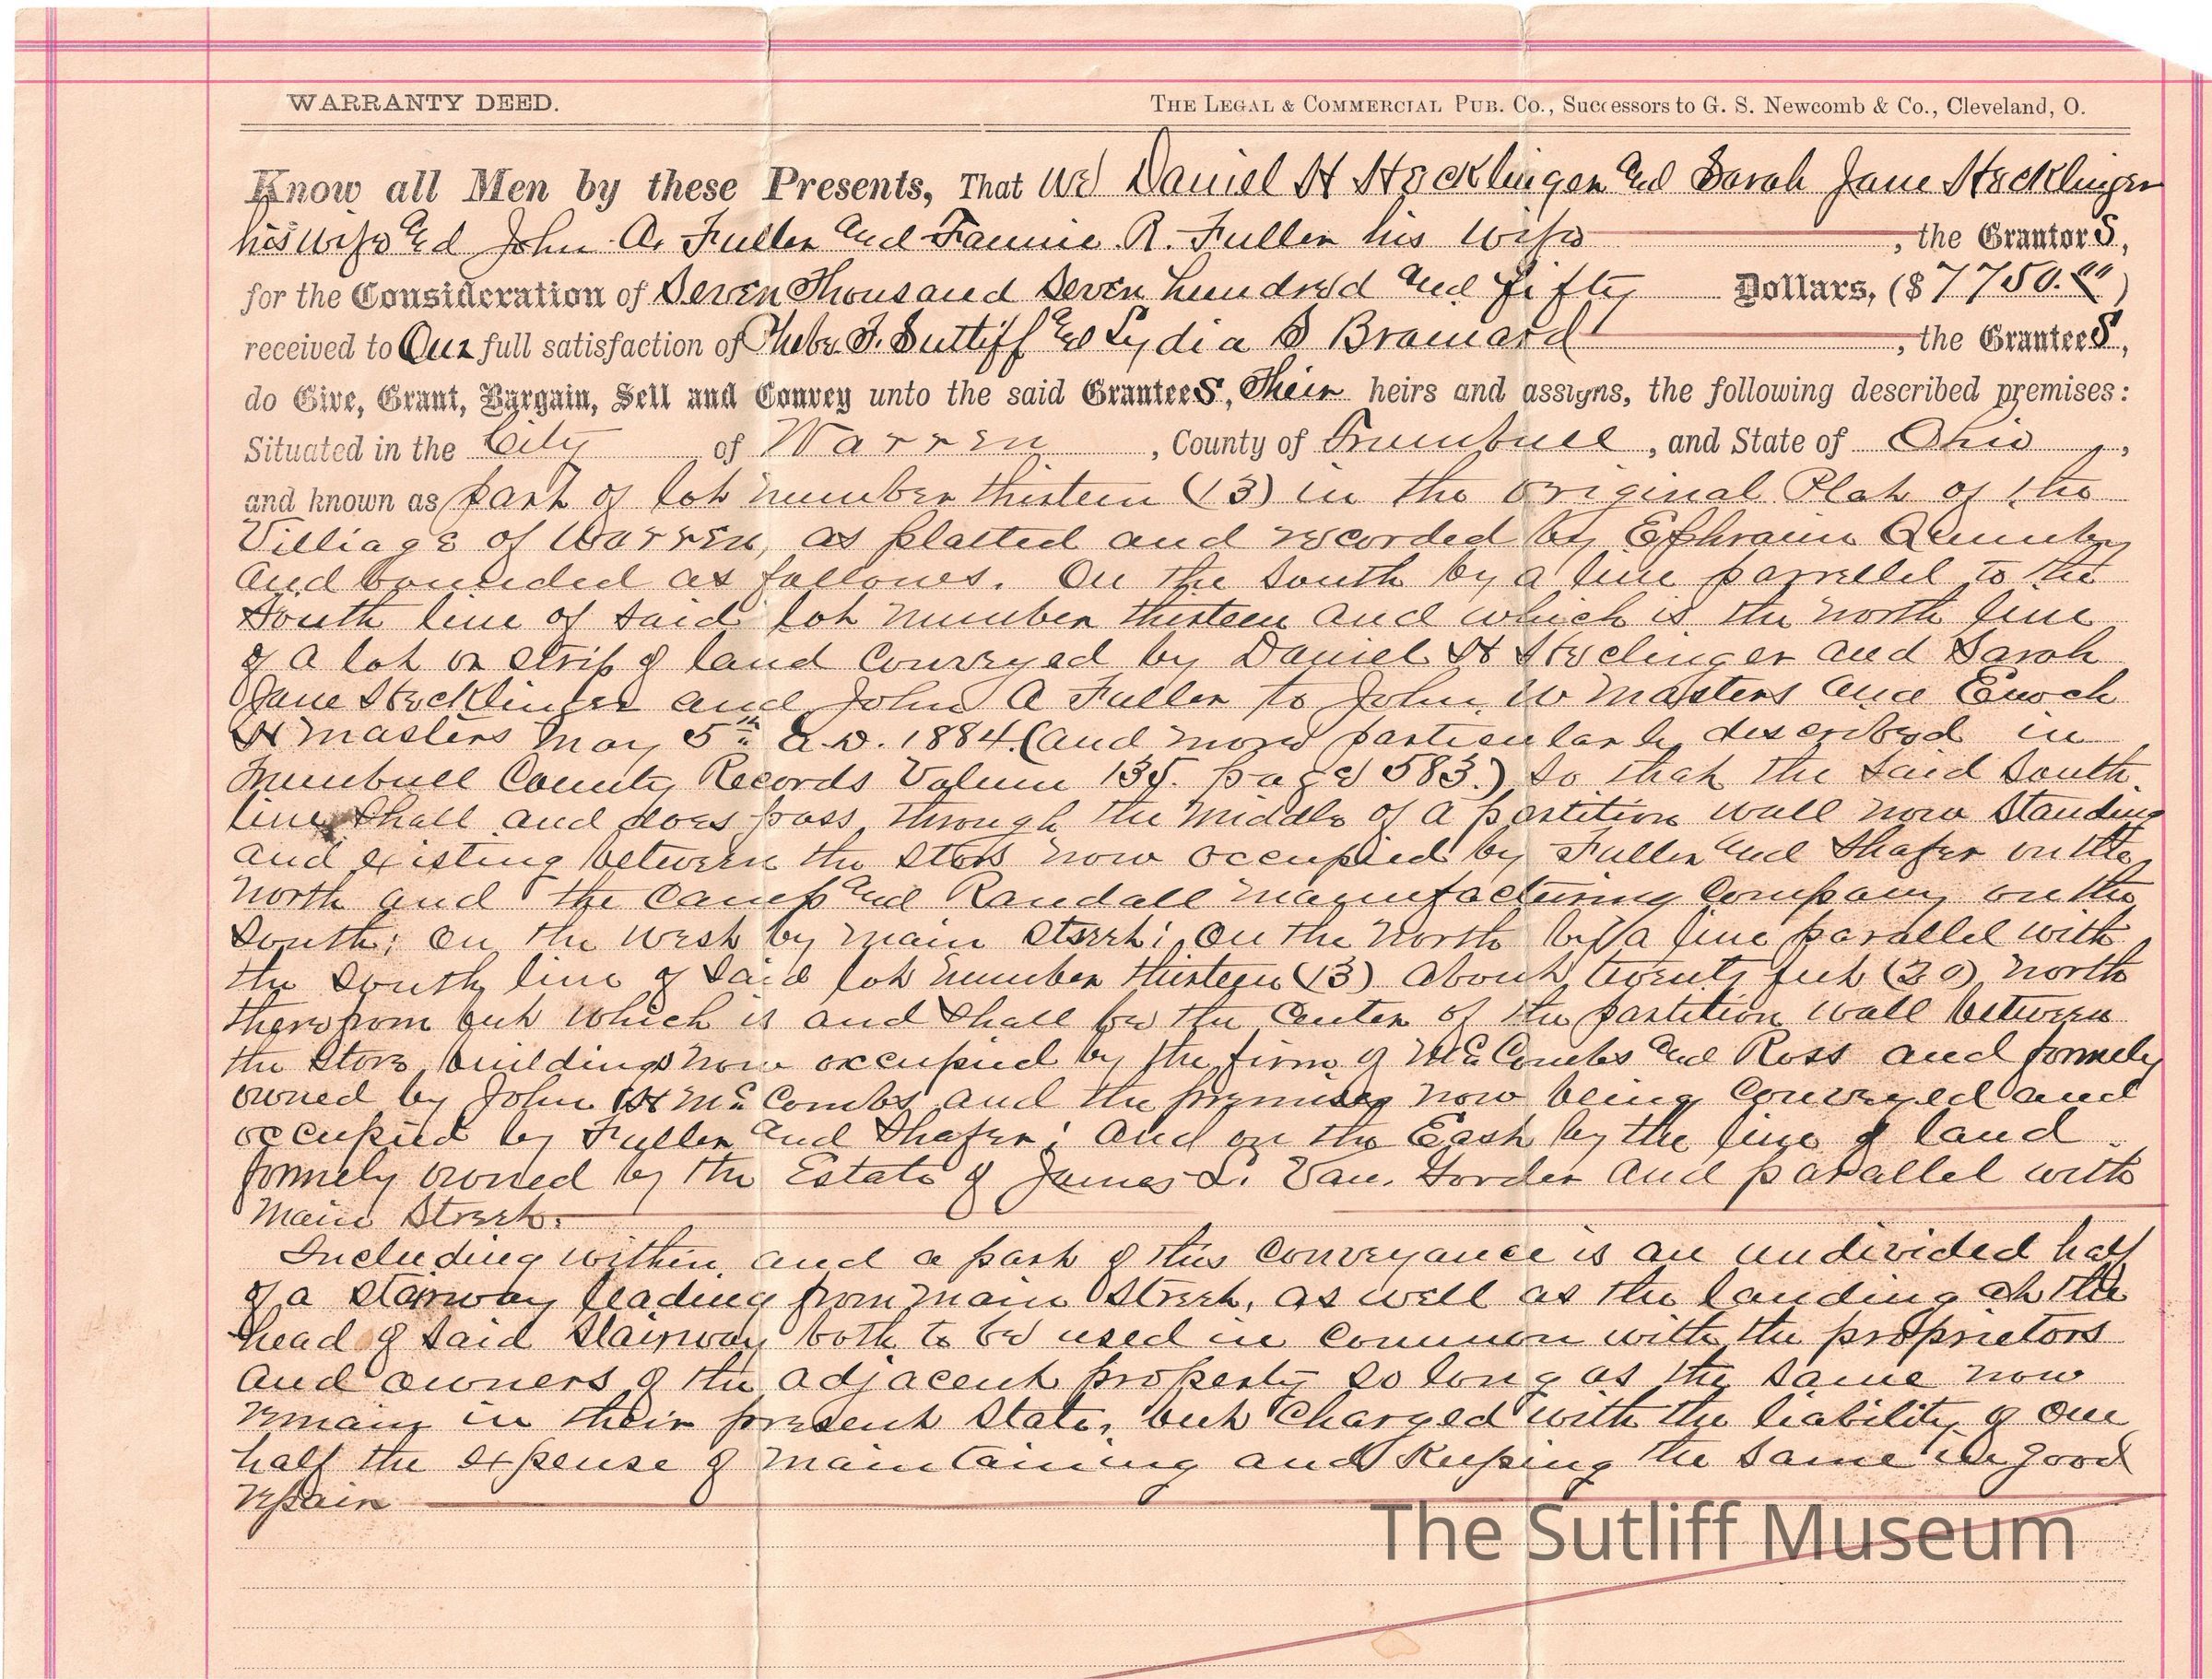 WARRANTY DEED.
THE LEGAL & COMMERCIAL PUB. CO., Successors to G. S. Newcomb & Co., Cleveland, O.
Know all Men by these Presents, That We Daniel H Hecklinger and Sarah Jane Hecklinger
his wife and John A. Fuller and Fannie R. Fuller his wife, the Grantors,
for the Consideration of Seven Thousand Seven hundred and fifty Dollars, ($7750.00)
received to Our full satisfaction of Phebe T. Sutliff and Lydia S Brainard, the Grantees,
do Give, Grant, Bargain, Sell and Convey unto the said Grantees, Their heirs and assigns, the following described premises:
Situated in the City of Warren, County of Trumbull, and State of Ohio,
and known as part of lot number thirteen (13) in the original Plat of the
Villiage of Warren, as platted and recorded by Ephraim Quinby
and bounded as follows. On the South by a line parrellel to the
South line of said lot number thirteen and which is the north line
of a lot or strip of land conveyed by Daniel H Heclinger and Sarah
Jane Hecklinger and John A Fuller to John W Masters and Enoch
H Masters May 5th A.D. 1884. (and more particularly described in
Trumbull County Records Volum 135. page 583.) so that the said South
line shall and does pass through the middle of a partition wall now standing
and existing between the store now occupied by Fuller and Shafer on the
north and the Camp and Randall Manufacturing Company on the
South; On the west by main street; On the north by a line parallel with
the south line of said lot number thirteen (13) about twenty feet (20) north
therefrom but which is and shall be the Center of the partition wall between
the store buildings now occupied by the firm of McCombs and Ross and formely
owned by John H McCombs and the premises now being conveyed and
occupied by Fuller and Shafer; and on the East by the line of land
formely owned by the Estate of James L. Van. Gorder and parallel with
Main Street.
Including within and a part of this conveyance is an undivided half
of a stairway leading from main Street, as well as the landing at the
head of said stairway both to be used in common with the proprietors
and owners of the adjacent property so long as the same now
remain in their present state, but charged with the liability of one
half the expense of maintaining and keeping the same in good
repair
The Sutliff Museum